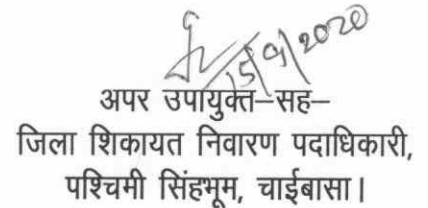 15/9/2020
अपर उपायुक्त–सह–
जिला शिकायत निवारण पदाधिकारी,
पश्चिमी सिंहभूम, चाईबासा।